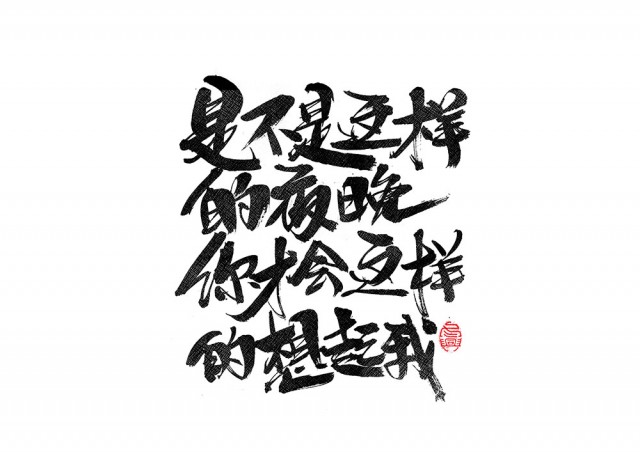 是不是这样
的夜晚
你才会这样
的想起我